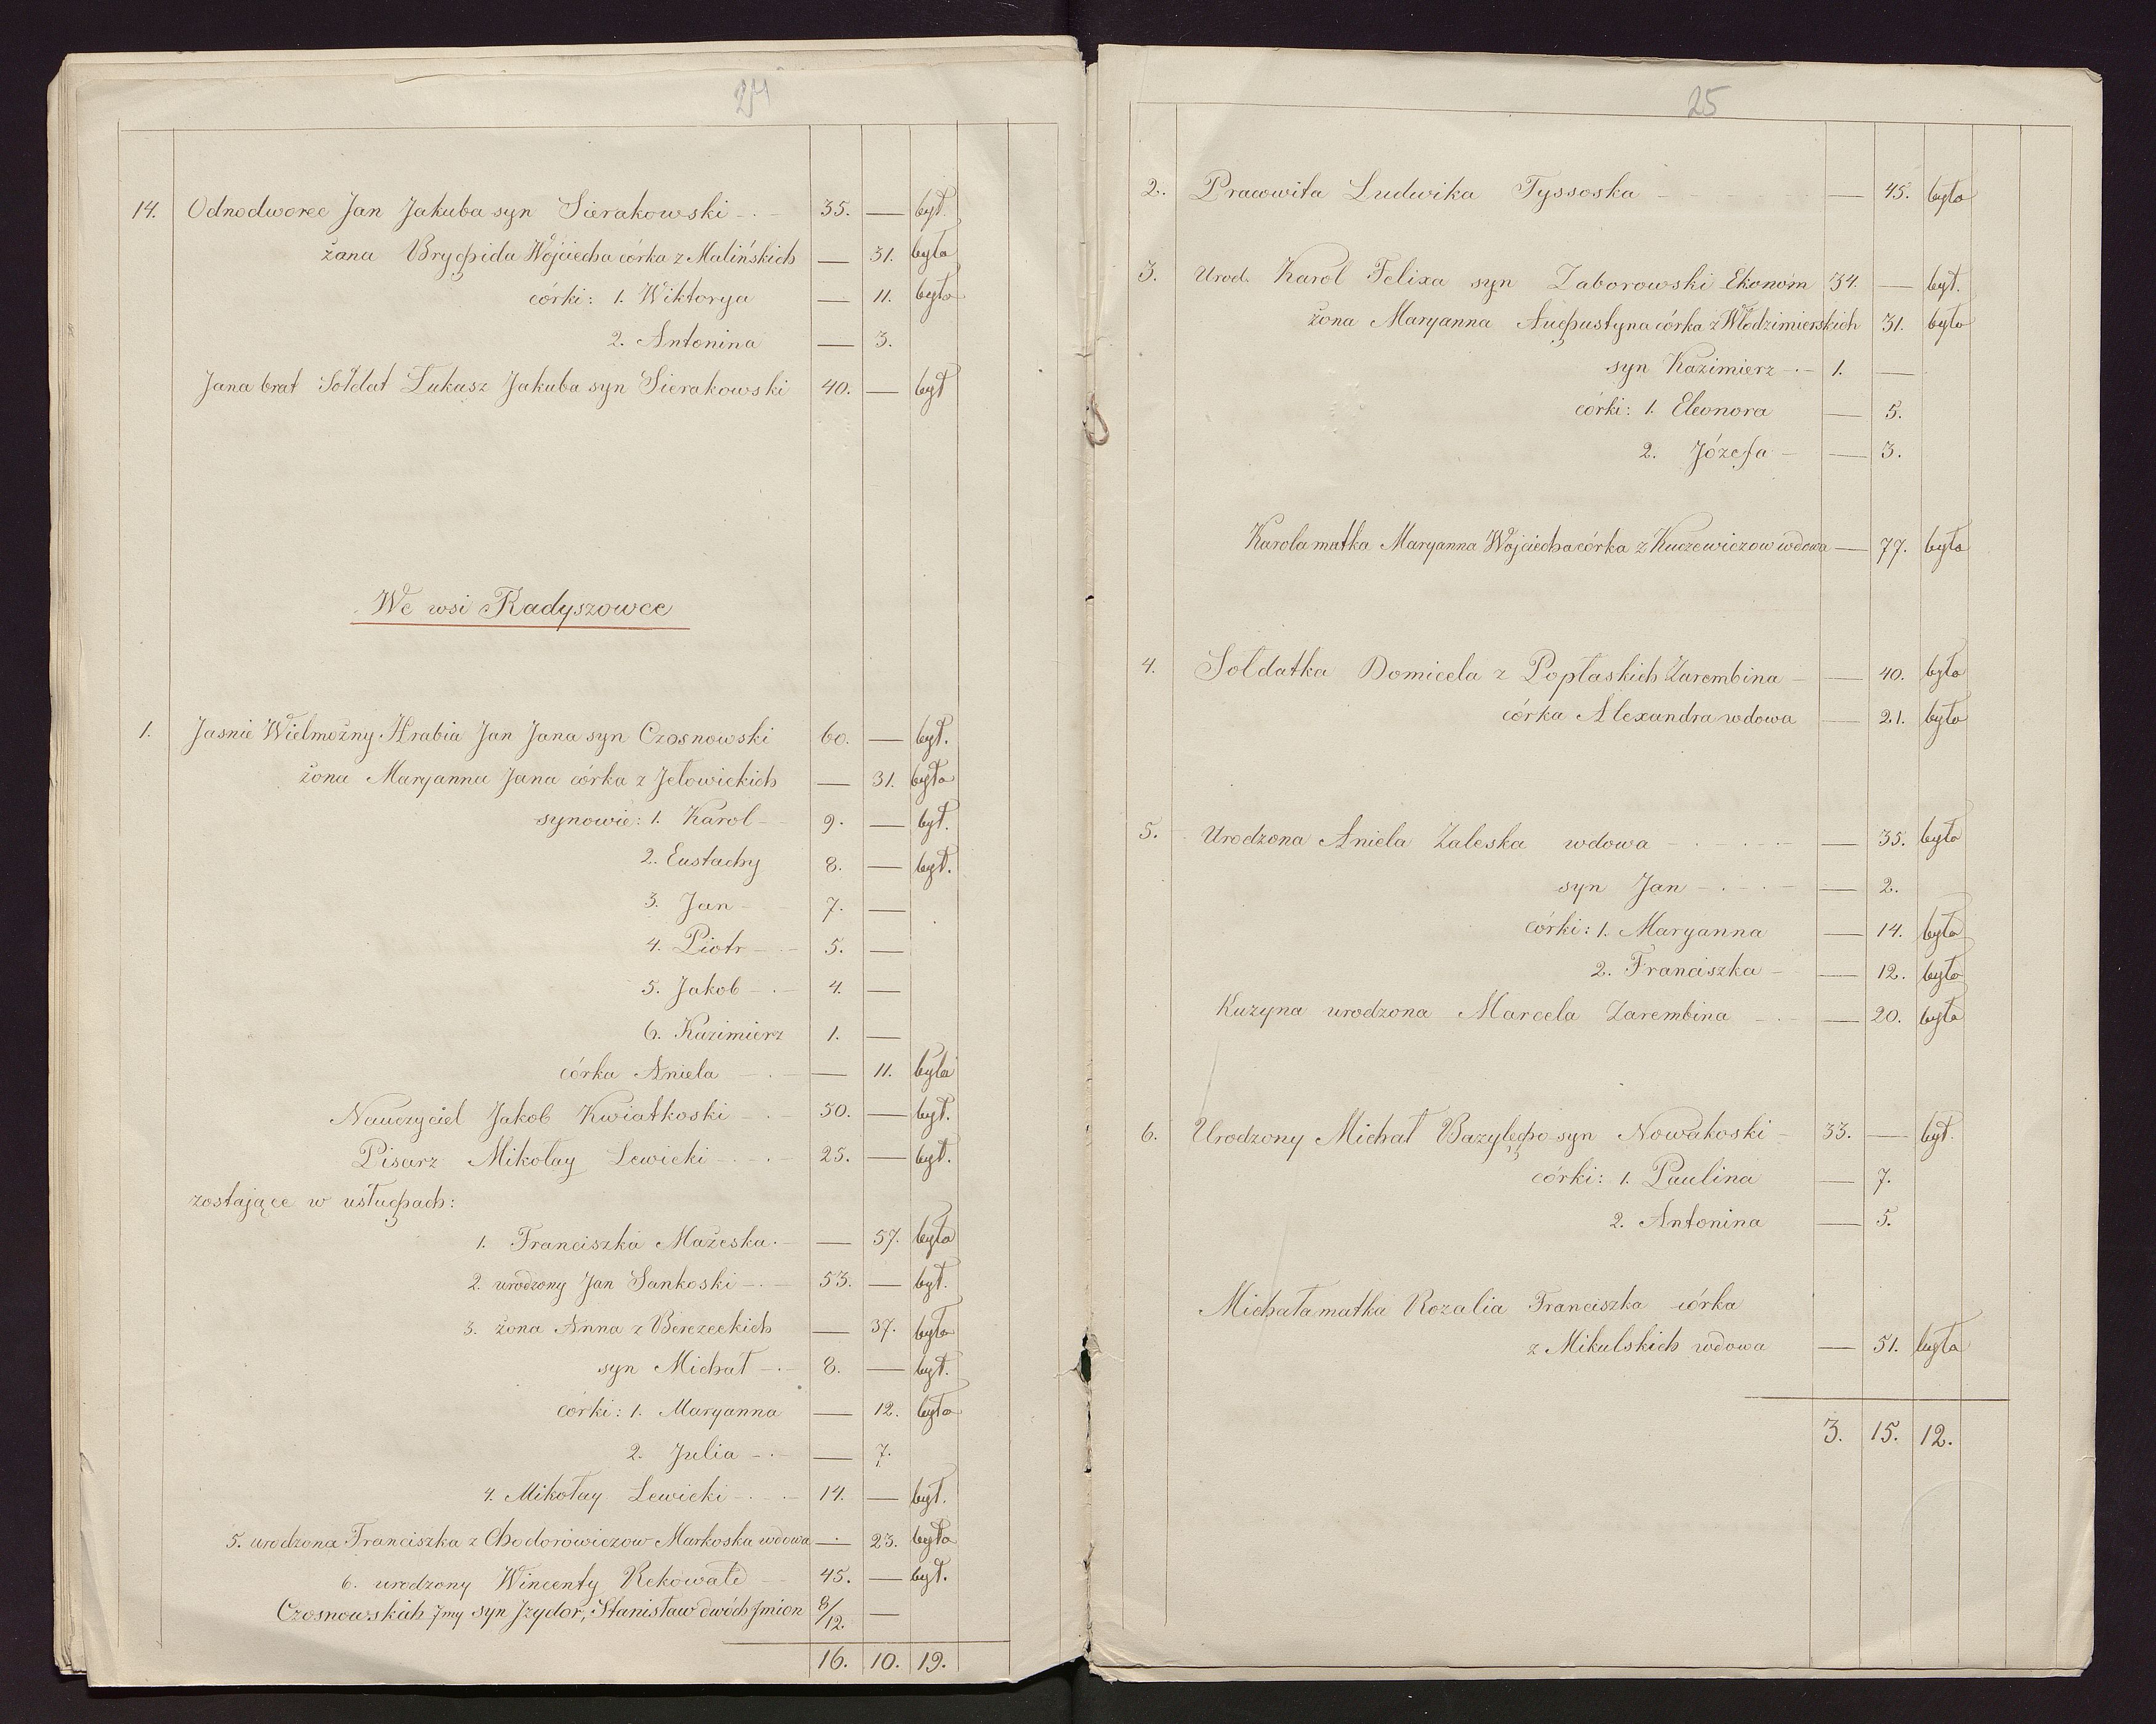 24
14. Odnodworec Jan Jakuba syn Sierakowski 35. — był.
żana Brygida Wojciecha córka z Malińskich — 31. była
córki: 1. Wiktorya — 11. była
2. Antonina — 3.
Jana brat Sołdat Łukasz Jakuba syn Sierakowski 40. — był
We wsi Radyszowce
1. Jasnie Wielmożny Hrabia Jan Jana syn Czosnowski 60. — był.
żona Maryanna Jana córka z Jełowickich — 31. była
synowie: 1. Karol 9. — był.
2. Eustachy 8. — był.
3. Jan 7. —
4. Piotr 5. —
5. Jakob 4. —
6. Kazimierz 1. —
córka Aniela — 11. była
Nauczyciel Jakob Kwiatkoski 50. — był.
Pisarz Mikołay Lewicki 25. — był.
zostające w usługach:
1. Franciszka Mażeska — 57. była
2. urodzony Jan Sankoski 53. — był.
3. żona Anna z Berezeckich — 37. była
syn Michał 8. — był.
córki: 1. Maryanna — 12. była
2. Julia — 7.
4. Mikołay Lewicki 14. — był.
5. urodzona Franciszka z Chodorowiczow Markoska wdowa — 23. była
6. urodzony Wincenty Rekowald 45. — był.
Czosnowskich Jmy syn Jzydor, Stanisław dwóch Jmion 8/12 —
16. 10. 19.
25
2. Pracowita Ludwika Tyssoska — 45. była
3. Urod. Karol Felixa syn Zaborowski Ekonom 34. — był.
żona Maryanna Augustyna córka z Włodzimierskich 31. była
syn Kazimierz 1. —
córki: 1. Eleonora — 5.
2. Józefa — 3.
Karola matka Maryanna Wojciecha córka z Kuczewiczow wdowa — 77. była
4. Sołdatka Domicela z Popłaskich Zarembina — 40. była
córka Alexandra wdowa — 21. była
5. Urodzona Aniela Zaleska wdowa — 35. była
syn Jan — 2.
córki: 1. Maryanna — 14. była
2. Franciszka — 12. była
Kuzyna urodzona Marcela Zarembina — 20. była
6. Urodzony Michał Bazylego syn Nowakoski 33. — był.
córki: 1. Paulina — 7.
2. Antonina — 5.
Michała matka Rozalia Franciszka córka
z Mikulskich wdowa — 51. była
3. 15. 12.